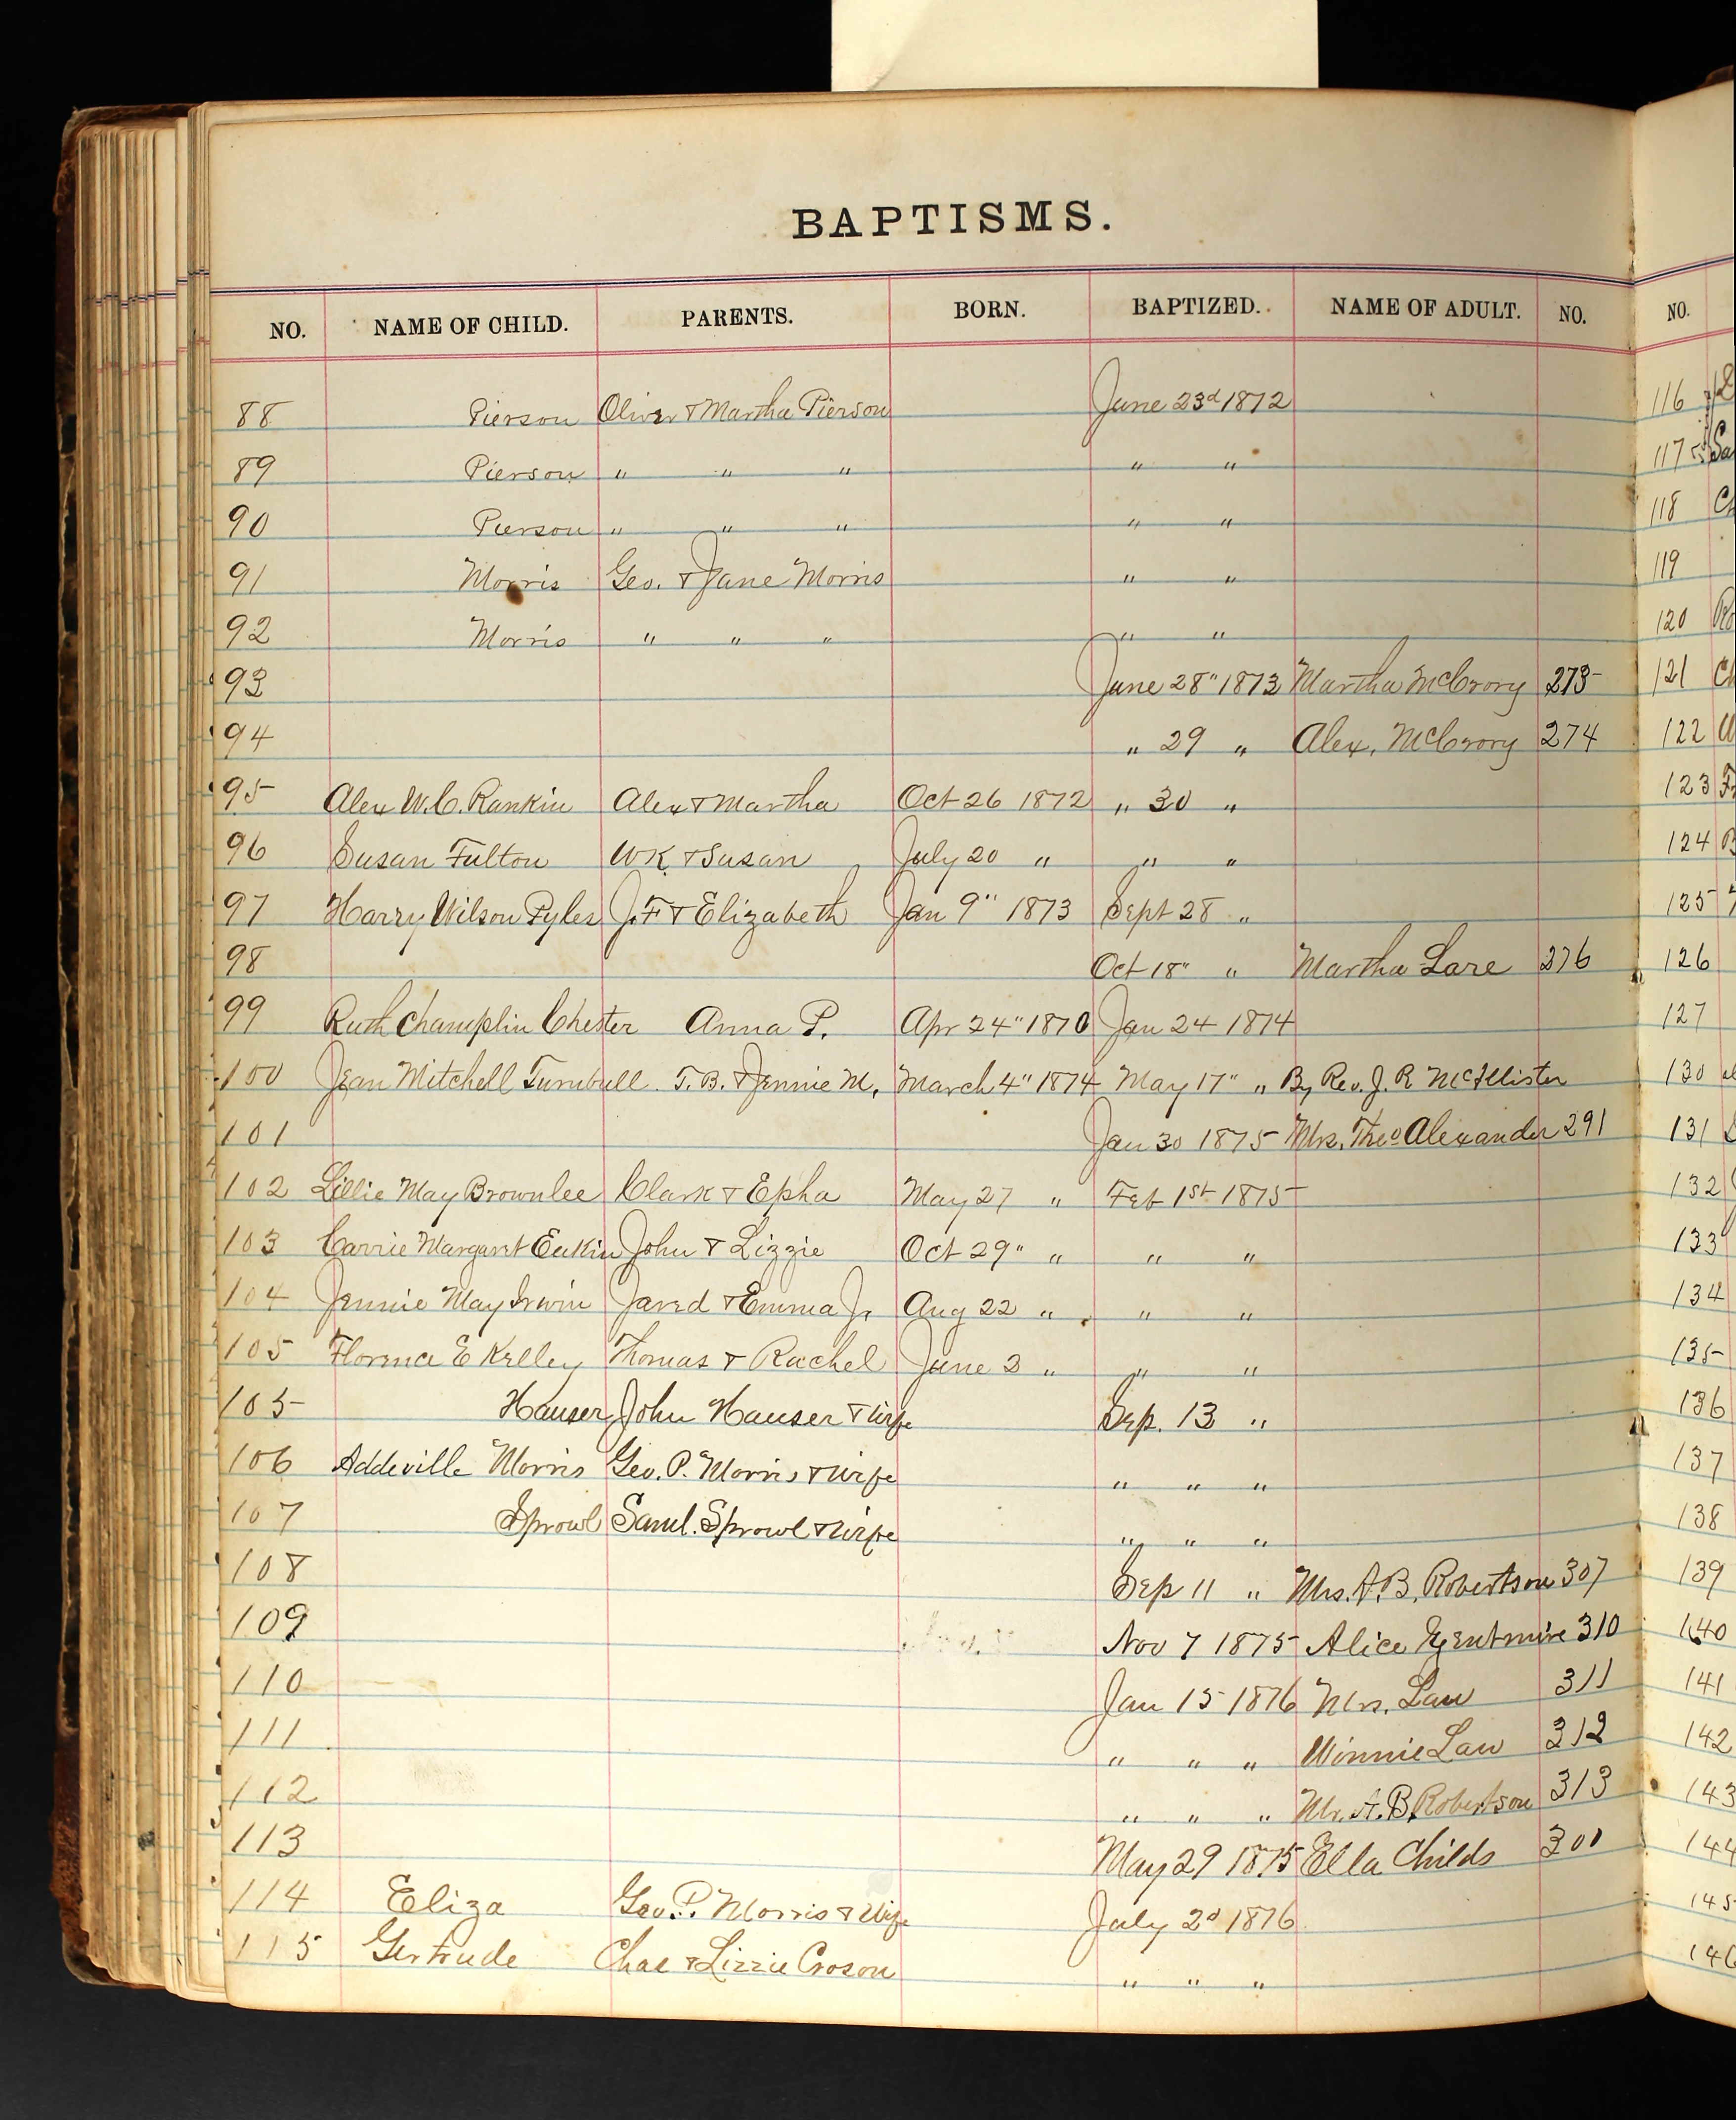 BAPTISMS.
NO. NAME OF CHILD. PARENTS. BORN. BAPTIZED. NAME OF ADULT. NO. NO.
88 Pierson Oliver & Martha Pierson June 23d 1872 116
89 Pierson " " " " " 117
90 Pierson " " " " " 118
91 Morris Geo. & Jane Morris " " 119
92 Morris " " " " " 120
93 June 28" 1873 Martha McCrory 273 121
94 " 29 " Alex. McCrory 274 122
95 Alex W. C. Rankin Alex & Martha Oct 26 1872 " 30 " 123
96 Susan Fulton WK & Susan July 20 " " " 124
97 Harry Wilson Pyles J. F & Elizabeth Jan 9" 1873 Sept 28 " 125
98 Oct 18" " Martha Lare 276 126
99 Ruth Champlin Chester Anna P. Apr 24" 1870 Jan 24 1874 127
100 Jean Mitchell Turnbull T. B. & Jennie M. March 4" 1874 May 17" " By Rev. J. R McAllister 130
101 Jan 30 1875 Mrs. Theo Alexander 291 131
102 Lillie May Brownlee Clark & Epha May 27 " Feb 1st 1875 132
103 Carrie Margaret Eakin John & Lizzie Oct 29" " " " 133
104 Jennie May Irwin Jared & Emma J. Aug 22 " " " 134
105 Florence E Kelley Thomas & Rachel June 3 " " " 135
105 Hauser John Hauser & Wife Sep. 13 " 136
106 Addeville Morris Geo. P. Morris & Wife " " " 137
107 Sprowl Saml. Sprowl & Wife " " " 138
108 Sep 11 " Mrs. A. B. Robertson 307 139
109 Nov 7 1875 Alice 310 140
110 Jan 15 1876 Mrs. Law 311 141
111 " " " Winnie Law 312 142
112 " " " Mr. A. B. Robertson 313 143
113 May 29 1875 Ella Childs 300 144
114 Eliza Geo. P. Morris & Wife July 2d 1876 145
115 Gertrude Chas & Lizzie Croson " " " 146